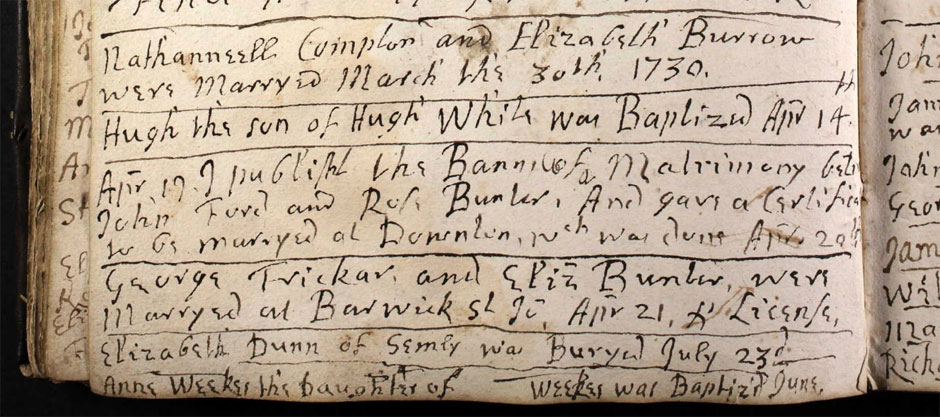 Nathanneell Compton and Elizabeth Burrow
were Marryed March the 30th, 1730.
Hugh the son of Hugh White was Baptized Apr 14th
Apr 19 I publisht the Banns of Matrimony betw
John Ford and Rose Bunter, And gave a Certifica
to be marryed at Donenton, wch was done Apr 20th
George Trickar, and Eliz Bunter, were
Marryed at Barwick St Jo, Apr 21, License,
Elizabeth Dunn of Semly was Buryed July 23d
Anne Weekes the Daughter of Weekes was Baptiz'd June.
John
Jam
wa
John
Geor
Jam
Wil
Ma
Richa